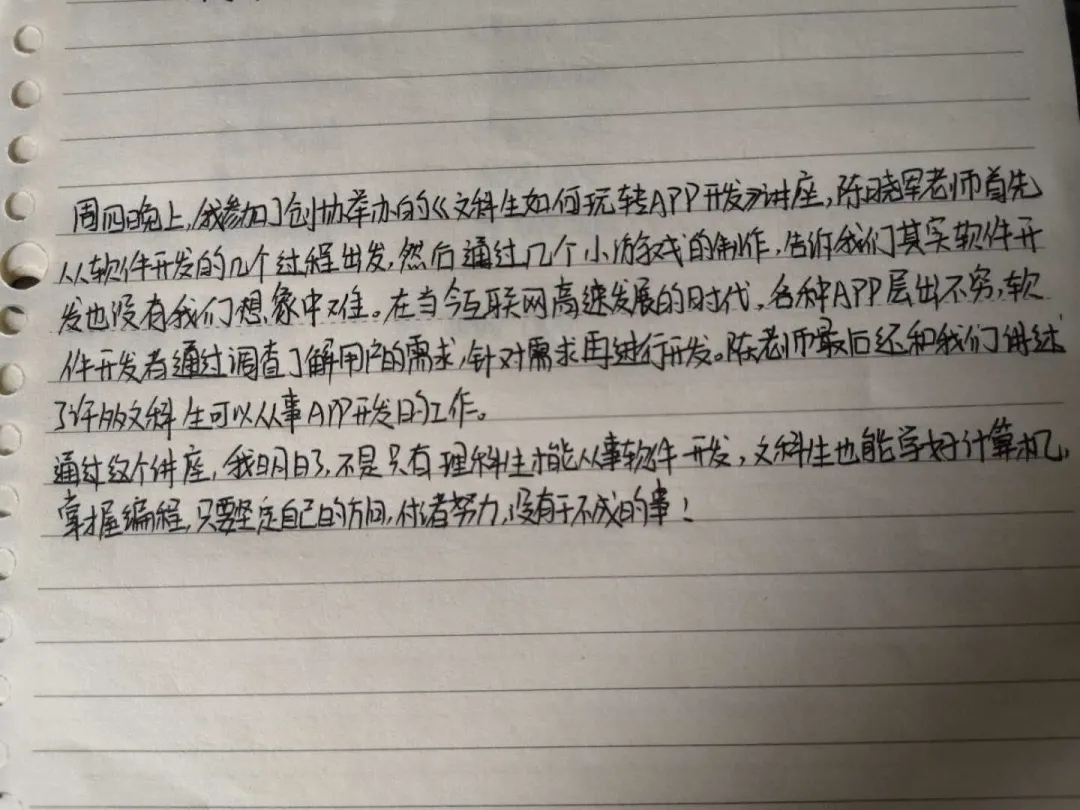 周四晚上，我参加了创协举办的《文科生如何玩转APP开发》讲座，陈晓军老师首先
从软件开发的几个过程出发，然后通过几个小游戏的制作，告诉我们其实软件开
发也没有我们想象中难。在当今互联网高速发展的时代，各种APP层出不穷，软
件开发者通过调查了解用户的需求，针对需求再进行开发。陈老师最后还和我们讲述
了许多文科生可以从事APP开发的工作。
通过这个讲座，我明白了，不是只有理科生才能从事软件开发，文科生也能学好计算机，
掌握编程，只要坚定自己的方向，付诸努力，没有干不成的事！